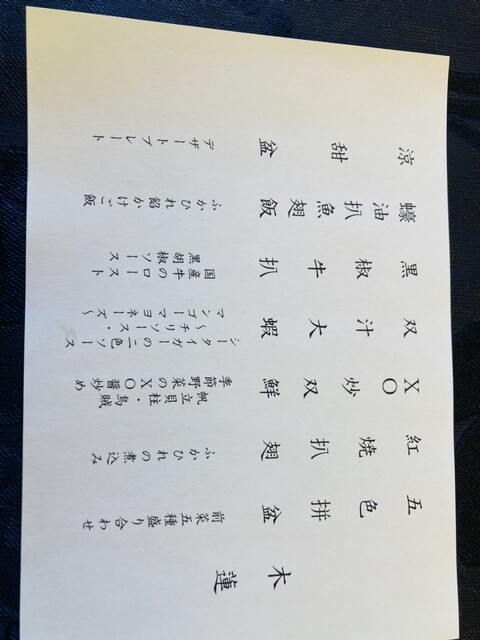 木蓮
五色拼盆
前菜五種盛り合わせ
紅焼扒翅
ふかひれの煮込み
XO炒双鮮
帆立貝柱・烏賊
季節野菜のXO醤炒め
双汁大蝦
シータイガーの二色ソース
~チリソース・
マンゴーマヨネーズ~
黒椒牛扒
国産牛のロースト
黒胡椒ソース
蠔油扒魚翅飯
ふかひれ餡かけご飯
涼甜盆
デザートプレート